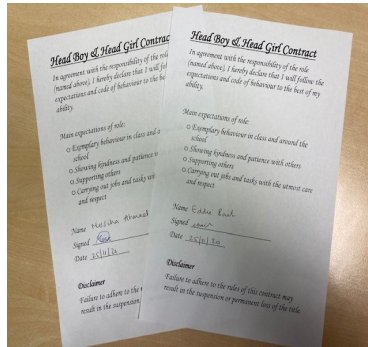 Head Boy & Head Girl Contract
In agreement with the responsibility of the role
(named above), I hereby declare that I will fol
expectations and code of behaviour to the be
ability.
Main expectations of role:
o Exemplary behaviour in class and a
school
o Showing kindness and patience w
o Supporting others
o Carrying out jobs and tasks wit
and respect
Name
Signed
Date 25/11/20
Disclaimer
Failure to adhere to the
result in the suspension
Head Boy & Head Girl Contract
In agreement with the responsibility of the role
(named above), I hereby declare that I will follow the
expectations and code of behaviour to the best of my
ability.
Main expectations of role:
o Exemplary behaviour in class and around the
school
o Showing kindness and patience with others
o Supporting others
o Carrying out jobs and tasks with the utmost care
and respect
Name
Signed
Date 25/11/20
Disclaimer
Failure to adhere to the rules of this contract may
result in the suspension or permanent loss of the title.